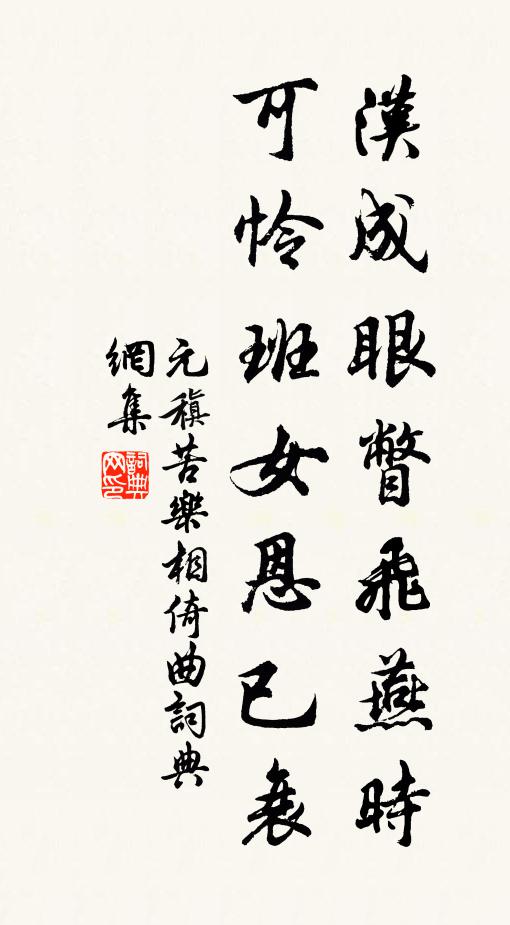 漢成眼瞥飛燕時
可怜班女恩已衰
元稹苦樂相倚曲詞典
網集
詞典网印